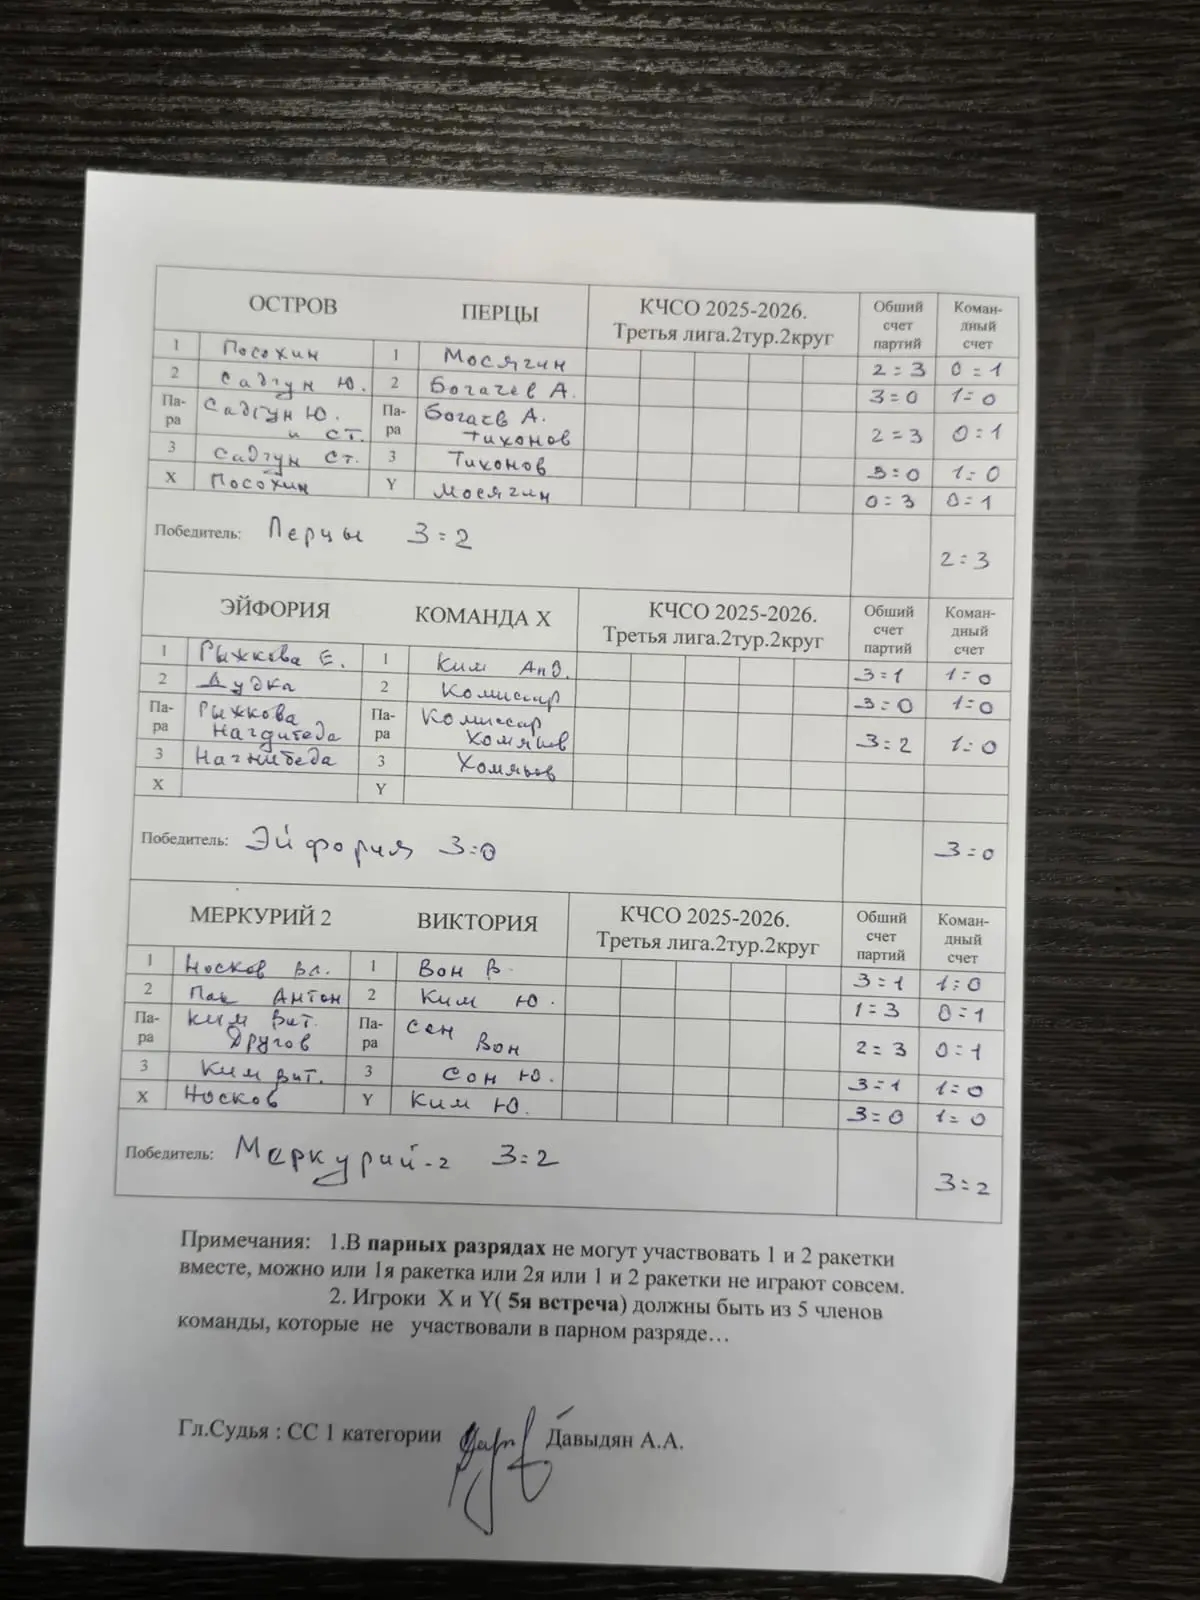 ОСТРОВ ПЕРЦЫ КЧСО 2025-2026. Третья лига.2тур.2круг Обший счет партий Коман-дный счет
1 Посохин 1 Мосягин 2=3 0=1
2 Садгун Ю. 2 Богачев А. 3=0 1=0
Па-ра Садгун Ю. и Ст. Па-ра Богаев А. Тихонов 2=3 0=1
3 Садгун Ст. 3 Тихонов 3=0 1=0
X Посохин Y Мосягин 0=3 0=1
Победитель: Перцы 3=2 2=3
ЭЙФОРИЯ КОМАНДА X КЧСО 2025-2026. Третья лига.2тур.2круг Обший счет партий Коман-дный счет
1 Рыжкова Е. 1 Ким 3=1 1=0
2 Дудка 2 Комиссар 3=0 1=0
Па-ра Рыжкова Па-ра Комиссар 3=2 1=0
3 Нагнибеда 3 Хомяков
X Y
Победитель: Эйфория 3=0 3=0
МЕРКУРИЙ 2 ВИКТОРИЯ КЧСО 2025-2026. Третья лига.2тур.2круг Обший счет партий Коман-дный счет
1 Носков Вл. 1 Вон В. 3=1 1=0
2 Пак Антон 2 Ким Ю. 1=3 0=1
Па-ра Ким Вит. Другов Па-ра Сон Вон 2=3 0=1
3 Ким Вит. 3 Сон Ю. 3=1 1=0
X Носков Y Ким Ю. 3=0 1=0
Победитель: Меркурий-2 3=2 3=2
Примечания: 1.В парных разрядах не могут участвовать 1 и 2 ракетки
вместе, можно или 1я ракетка или 2я или 1 и 2 ракетки не играют совсем.
2. Игроки X и Y( 5я встреча) должны быть из 5 членов
команды, которые не участвовали в парном разряде…
Гл.Судья : СС 1 категории Давыдян А.А.